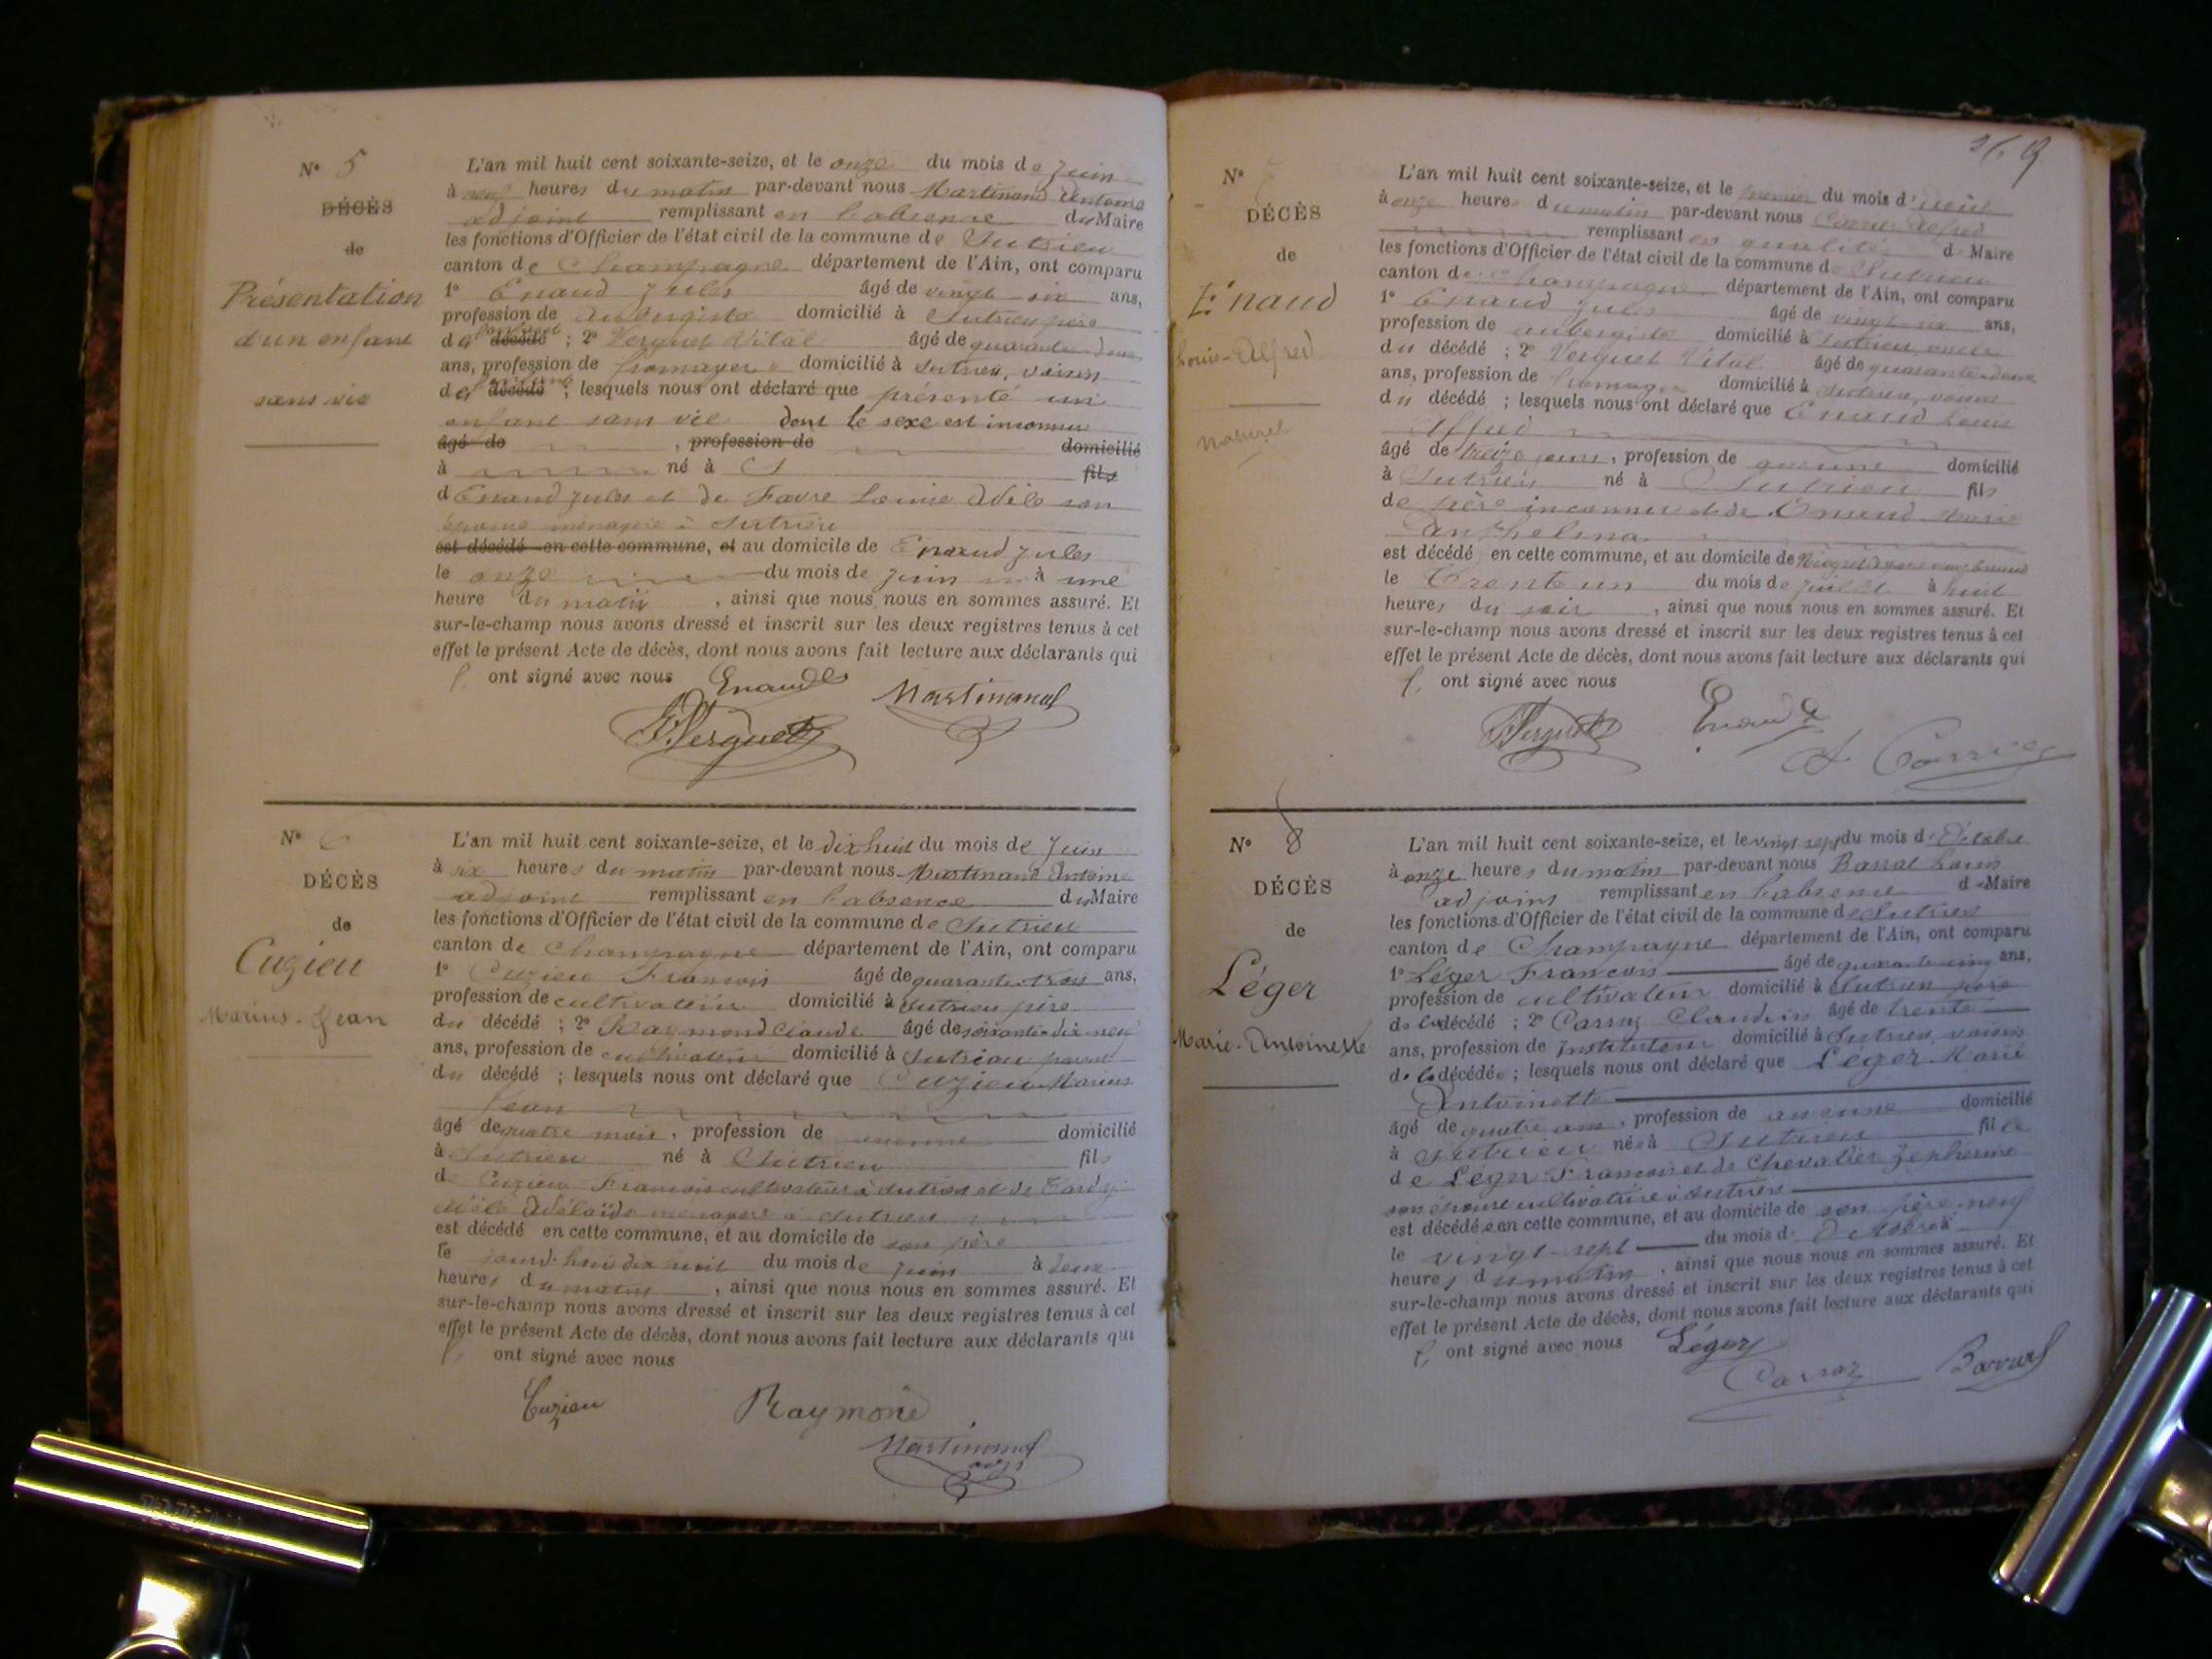 N° 5
DÉCÈS
de
Présentation
d'un enfant
sans vie
L'an mil huit cent soixante-seize, et le onze du mois de Juin
à neuf heures du matin par-devant nous Martinand Antoine
adjoint remplissant en l'absence du Maire
les fonctions d'Officier de l'état civil de la commune de Sutrieu
canton de Champagne département de l'Ain, ont comparu
1° Enaud Jules âgé de vingt-six ans,
profession de aubergiste domicilié à Sutrieu père
de décédé ; 2° Verguet Vital âgé de quarante-deux
ans, profession de fromager domicilié à Sutrieu, voisin
de décédé ; lesquels nous ont déclaré que présenté un
enfant sans vie dont le sexe est inconnu
âgé de , profession de domicilié
à né à fils
d'Enaud Jules et de Favre Louise Adèle son
épouse ménagère à Sutrieu
est décédé en cette commune, et au domicile de Enaud Jules
le onze du mois de juin à une
heure du matin , ainsi que nous nous en sommes assuré. Et
sur-le-champ nous avons dressé et inscrit sur les deux registres tenus à cet
effet le présent Acte de décès, dont nous avons fait lecture aux déclarants qui
ont signé avec nous Enaud Martinand
Verguet
N° 6
DÉCÈS
de
Cuzieu
Marius-Jean
L'an mil huit cent soixante-seize, et le dix huit du mois de Juin
à six heures du matin par-devant nous Martinand Antoine
adjoint remplissant en l'absence du Maire
les fonctions d'Officier de l'état civil de la commune de Sutrieu
canton de Champagne département de l'Ain, ont comparu
1° Cuzieu François âgé de quarante-trois ans,
profession de cultivateur domicilié à Sutrieu père
du décédé ; 2° Raymond Claude âgé de soixante-dix-neuf
ans, profession de cultivateur domicilié à Sutrieu parent
du décédé ; lesquels nous ont déclaré que Cuzieu Marius
Jean
âgé de quatre mois, profession de aucune domicilié
à Sutrieu né à Sutrieu fils
de Cuzieu François cultivateur à Sutrieu et de Tardy
Adélaïde ménagère à Sutrieu
est décédé en cette commune, et au domicile de son père
le jourd'hui dix huit du mois de juin à deux
heures du matin , ainsi que nous nous en sommes assuré. Et
sur-le-champ nous avons dressé et inscrit sur les deux registres tenus à cet
effet le présent Acte de décès, dont nous avons fait lecture aux déclarants qui
ont signé avec nous
Cuzieu Raymond
Martinand
adj
N°
DÉCÈS
de
Enaud
Louis-Alfred
naturel
L'an mil huit cent soixante-seize, et le premier du mois d'août
à onze heures du matin par-devant nous Carrier Alfred
remplissant en qualité de Maire
les fonctions d'Officier de l'état civil de la commune de Sutrieu
canton de Champagne département de l'Ain, ont comparu
1° Enaud Jules âgé de vingt-six ans,
profession de aubergiste domicilié à Sutrieu, oncle
du décédé ; 2° Verguet Vital âgé de quarante-deux
ans, profession de fromager domicilié à Sutrieu, voisin
du décédé ; lesquels nous ont déclaré que Enaud Louis
Alfred
âgé de treize jours, profession de aucune domicilié
à Sutrieu né à Sutrieu fils
de père inconnu et de Enaud Marie
Anthelma
est décédé en cette commune, et au domicile de
le trente un du mois de juillet à huit
heures du soir , ainsi que nous nous en sommes assuré. Et
sur-le-champ nous avons dressé et inscrit sur les deux registres tenus à cet
effet le présent Acte de décès, dont nous avons fait lecture aux déclarants qui
ont signé avec nous
Verguet Enaud
N° 8
DÉCÈS
de
Léger
Marie-Antoinette
L'an mil huit cent soixante-seize, et le vingt sept du mois d'Octobre
à onze heures du matin par-devant nous Barral Louis
adjoint remplissant en l'absence du Maire
les fonctions d'Officier de l'état civil de la commune de Sutrieu
canton de Champagne département de l'Ain, ont comparu
1° Léger François âgé de quarante-cinq ans,
profession de cultivateur domicilié à Sutrieu père
de la décédée ; 2° Carroz Claudius âgé de trente
ans, profession de Instituteur domicilié à Sutrieu, voisin
de la décédée ; lesquels nous ont déclaré que Léger Marie
Antoinette
âgé de quatre ans, profession de aucune domicilié
à Sutrieu née à Sutrieu fille
de Léger François et de Chevalier Zépherine
son épouse cultivatrice à Sutrieu
est décédée en cette commune, et au domicile de son père neuf
le vingt-sept du mois d'Octobre à
heures du matin , ainsi que nous nous en sommes assuré. Et
sur-le-champ nous avons dressé et inscrit sur les deux registres tenus à cet
effet le présent Acte de décès, dont nous avons fait lecture aux déclarants qui
ont signé avec nous Léger
Carroz Barral